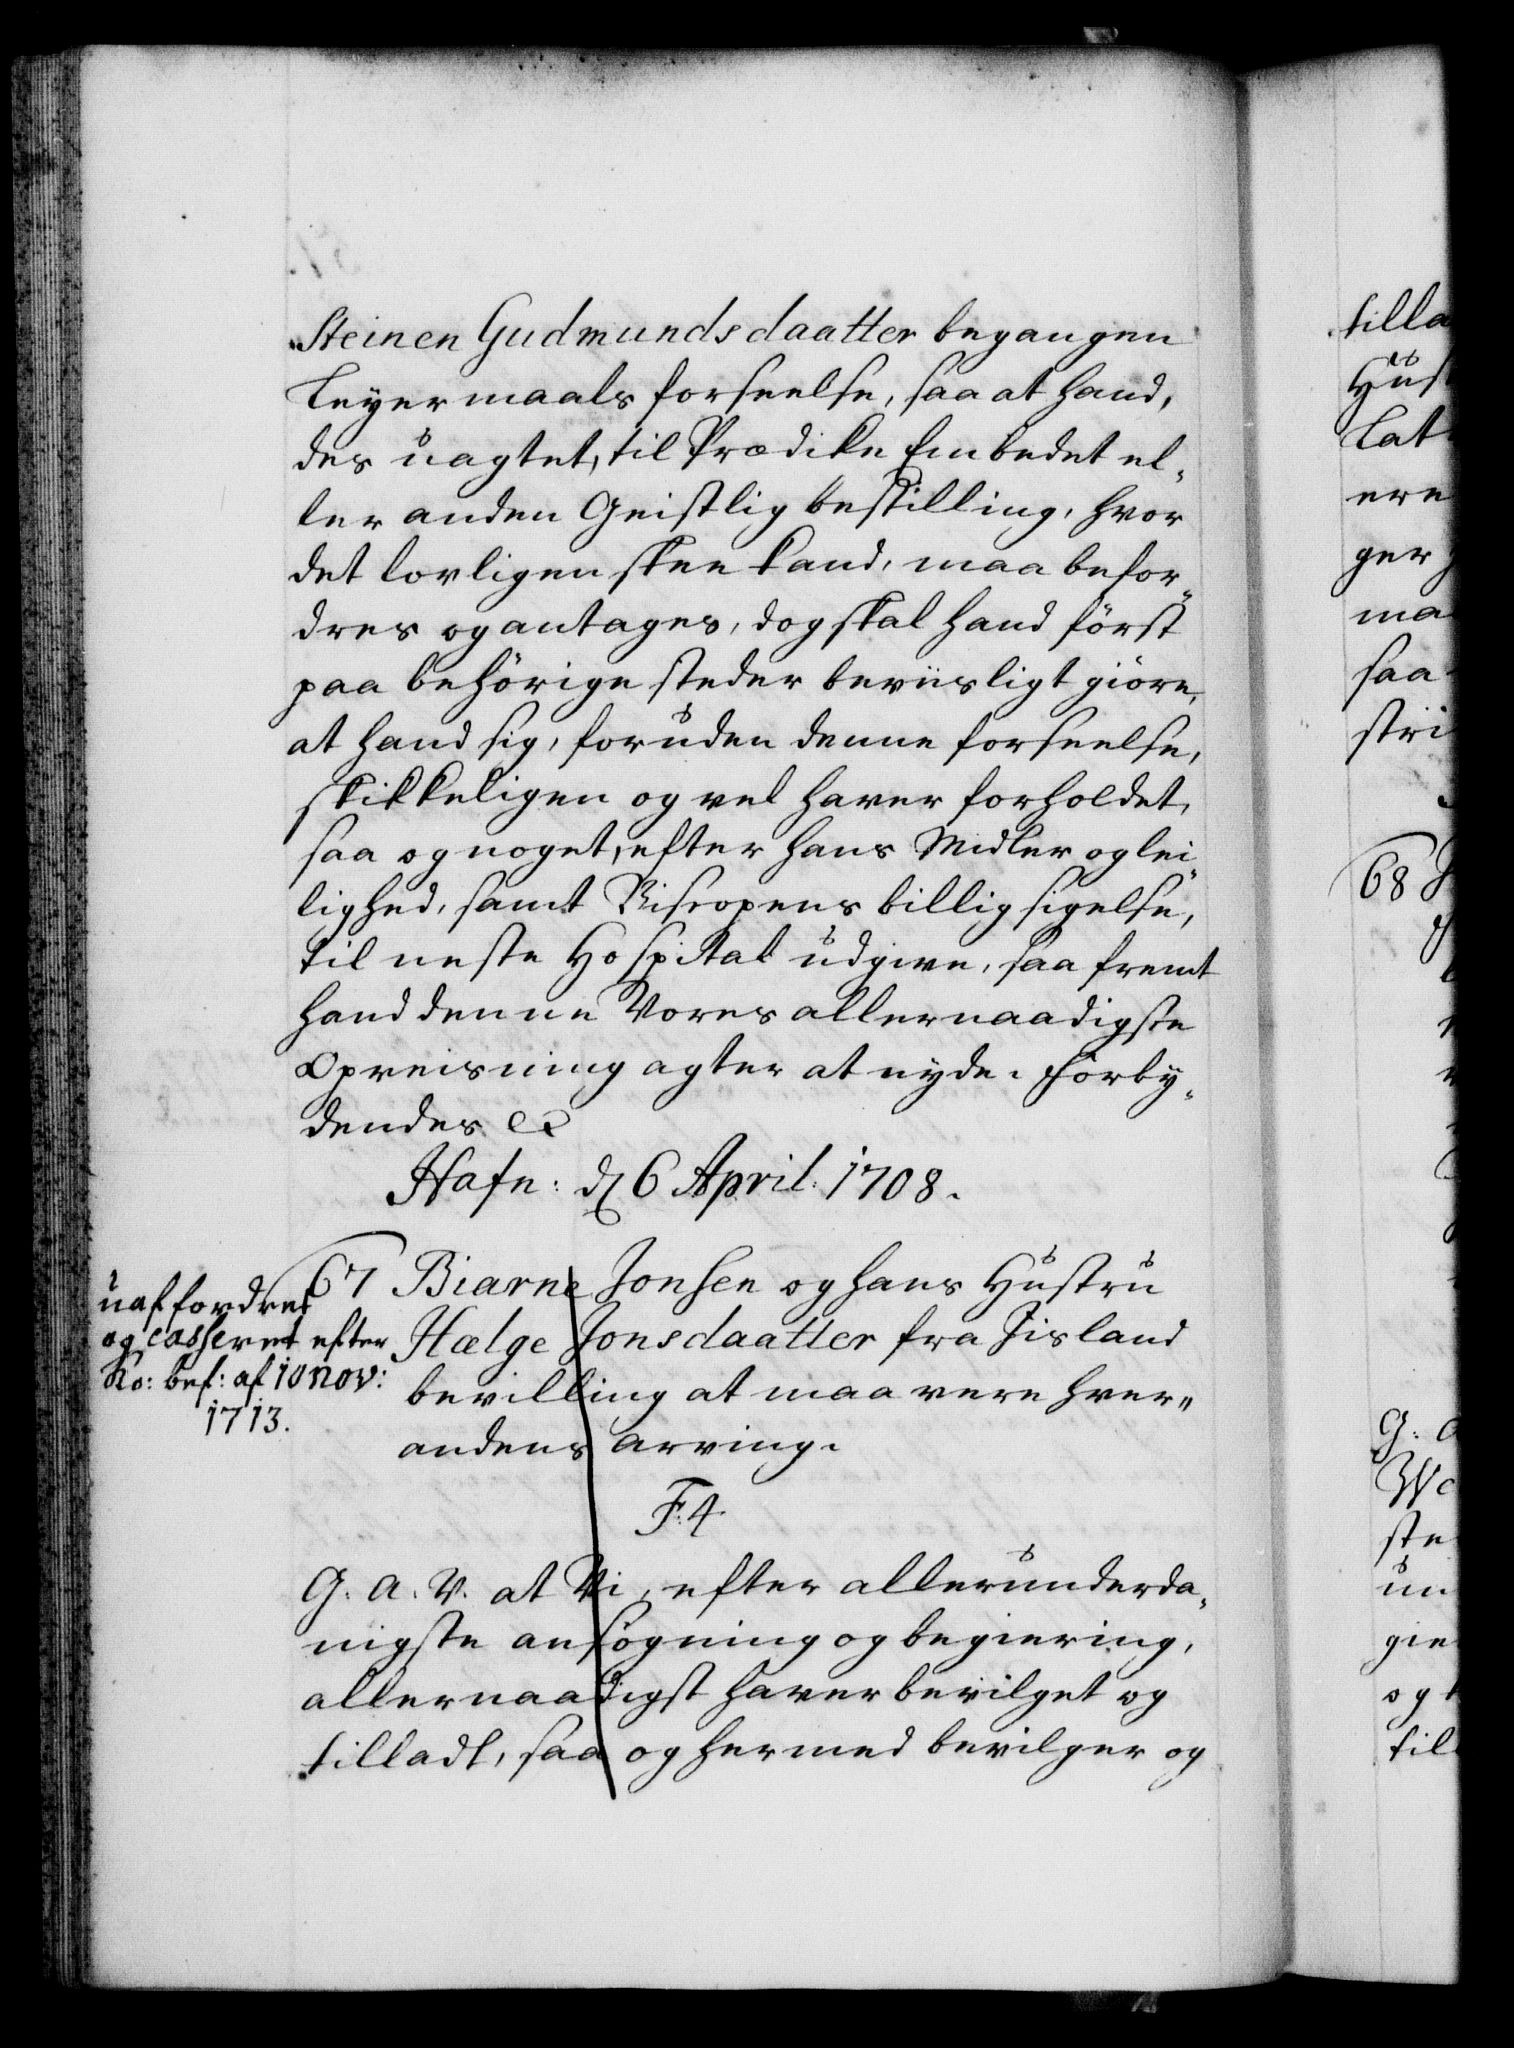 Steinen Gudmundsdaatter begangen
Leyermaals forseelse, saa at hand,
des uagtet, til Prædike Embedet el„
ler anden Geistlig bestilling, hvor
det lovligen skee kand, maa befor„
dres og antages, dog skal hand först
paa behörige steder beviisligt giöre,
at hand sig, foruden denne forseelse,
skikkeligen og vel haver forholdet,
saa og noget, efter hans Midler og lei„
lighed, samt Biscopens billig sigelse,
til neste Hospital udgive, saa fremt
hand denne Vores allernaadigste
Opreisning agter at nyde. Forby„
dendes &
Hafn: d 6 April: 1708.
67 Biarne Jonsen og hans Hustru
Hælge Jonsdaatter fra Jisland
bevilling at maa vere hver„
andens arving.
uaffordret
og casseret efter
Ko: bef: af 10 Nov:
1713.
F. 4.
G. A. V. at Vi, efter allerunderda„
nigste ansögning og begiering,
allernaadigst haver bevilget og
tilladt, saa og hermed bevilger og
tilla
Hust
Lat
ere
ger
ma
saa
stri
68
G: a
We
ste
un
gie
og
till